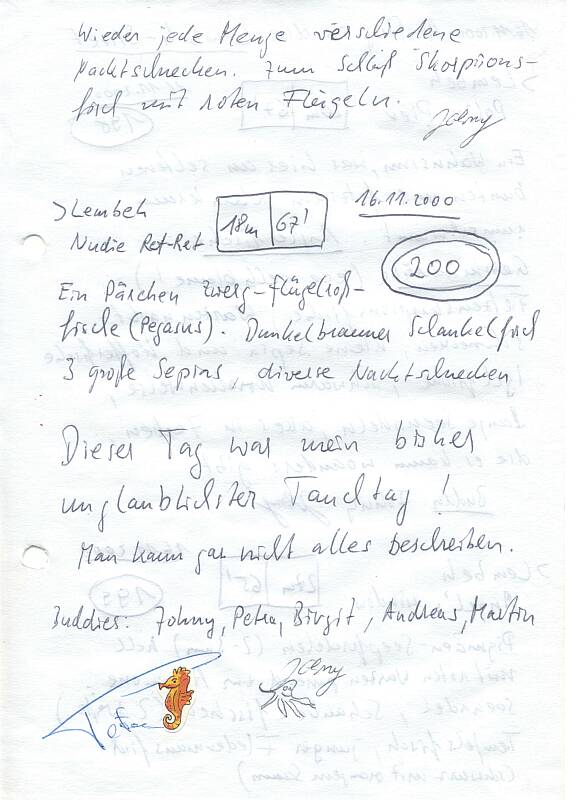 Wieder jede Menge verschiedene
Nacktschnecken. Zum Schluß Skorpions-
fisch mit roten Flügeln.
Johny
>Lembeh 18m 67' 16.11.2000
Nudie Ret-Ret 200
Ein Pärchen Zwerg-Flügelroß-
fische (Pegasus). Dunkelbrauner Schaukelfisch
3 große Sepias, diverse Nacktschnecken
Dieser Tag war mein bisher
unglaublichster Tauchtag!
Man kann gar nicht alles beschreiben.
Buddies: Johny, Petra, Birgit, Andreas, Martin
Johny